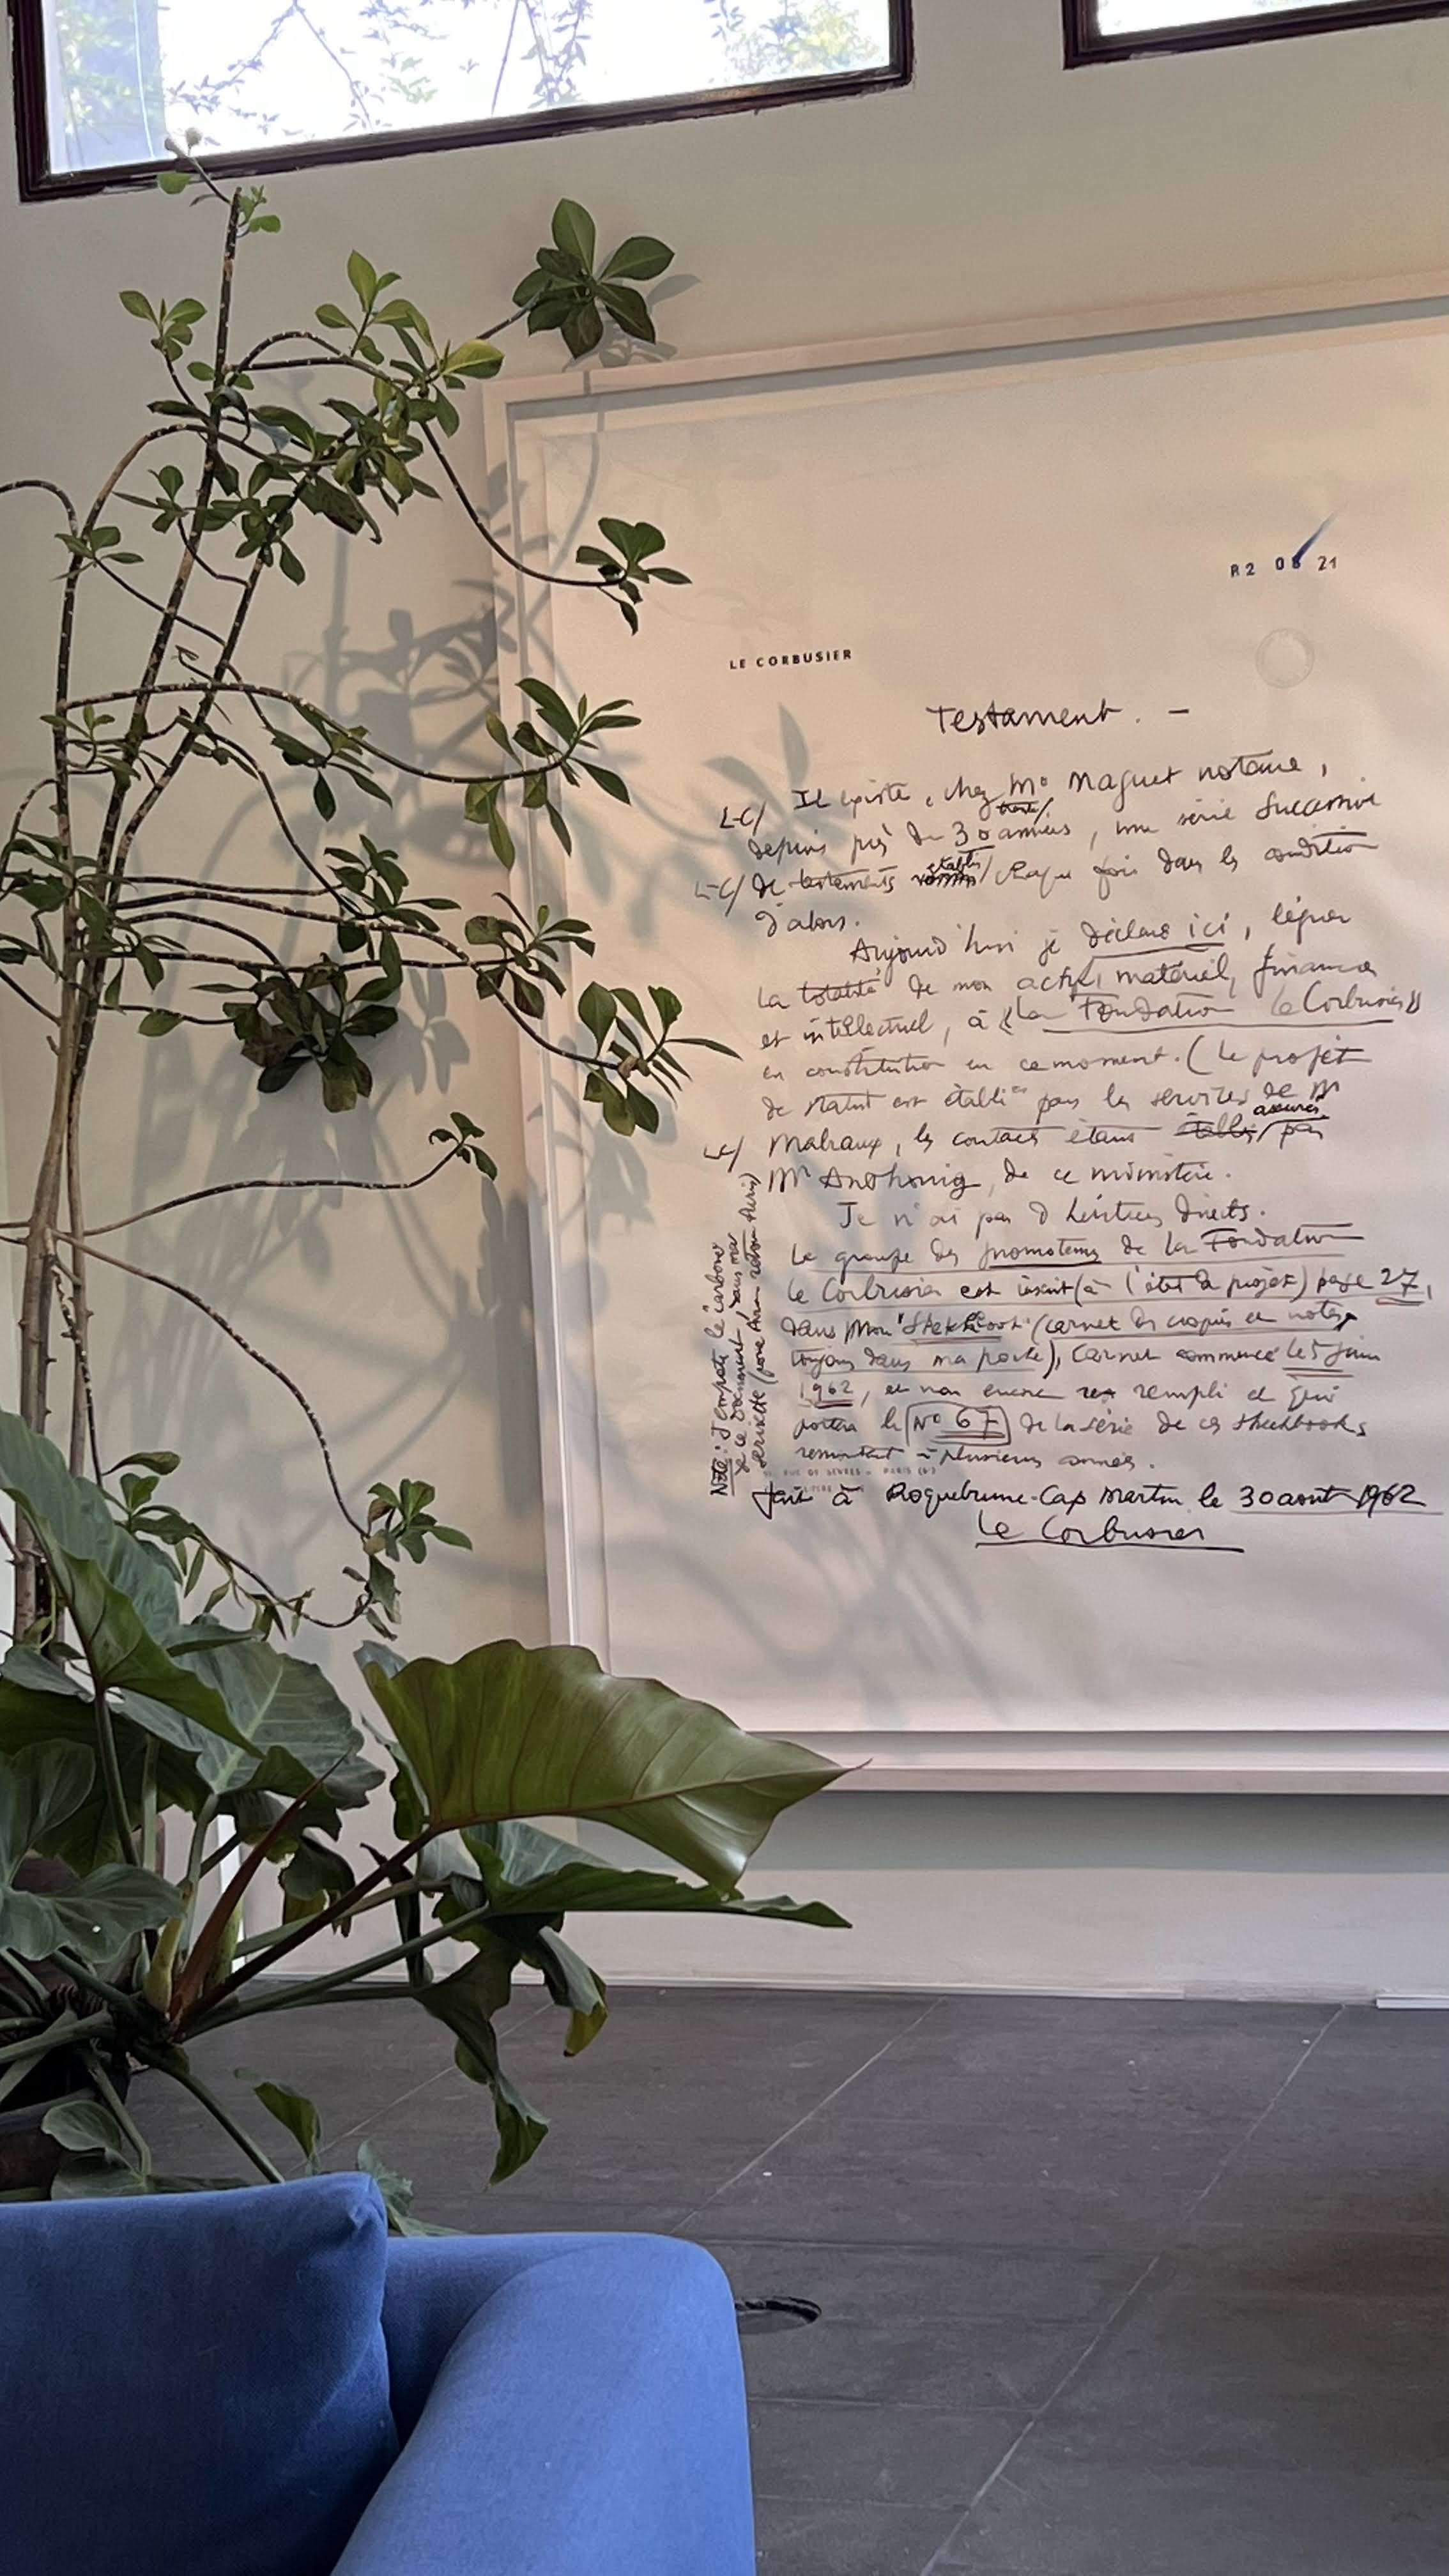 R2 08 21
LE CORBUSIER
Testament. —
L-C/ Il existe, chez Me Maguet notaire,
depuis près de 30 années, une série successive
trente/
L-C/ de testaments établis/ chaque fois dans les conditions
d'alors.
Aujourd'hui je déclare ici, léguer
la totalité de mon actif, matériel, financier
et intellectuel, à "La Fondation le Corbusier"
en constitution en ce moment. (Le projet
de statut est établi par les services de Mr
L-C/ Malraux, les contacts étant assurés/ par
Mr Anthonioz, de ce ministère.
Je n'ai pas d'héritiers directs.
Le groupe des promoteurs de la Fondation
le Corbusier est inscrit (à l'état de projet) page 27,
dans mon "Sketchbook" (carnet de croquis et notes
toujours dans ma poche), carnet commencé le 5 juin
1962, et non encore rempli et qui
portera le N° 67 de la série de ces sketchbooks
remontant à plusieurs années.
RUE DE SEVRES - PARIS (6e)
Fait à Roquebrune-Cap Martin le 30 août 1962
Le Corbusier
Note: J'emporte le carbone
de ce document, dans ma
serviette (pour Avion retour Paris)